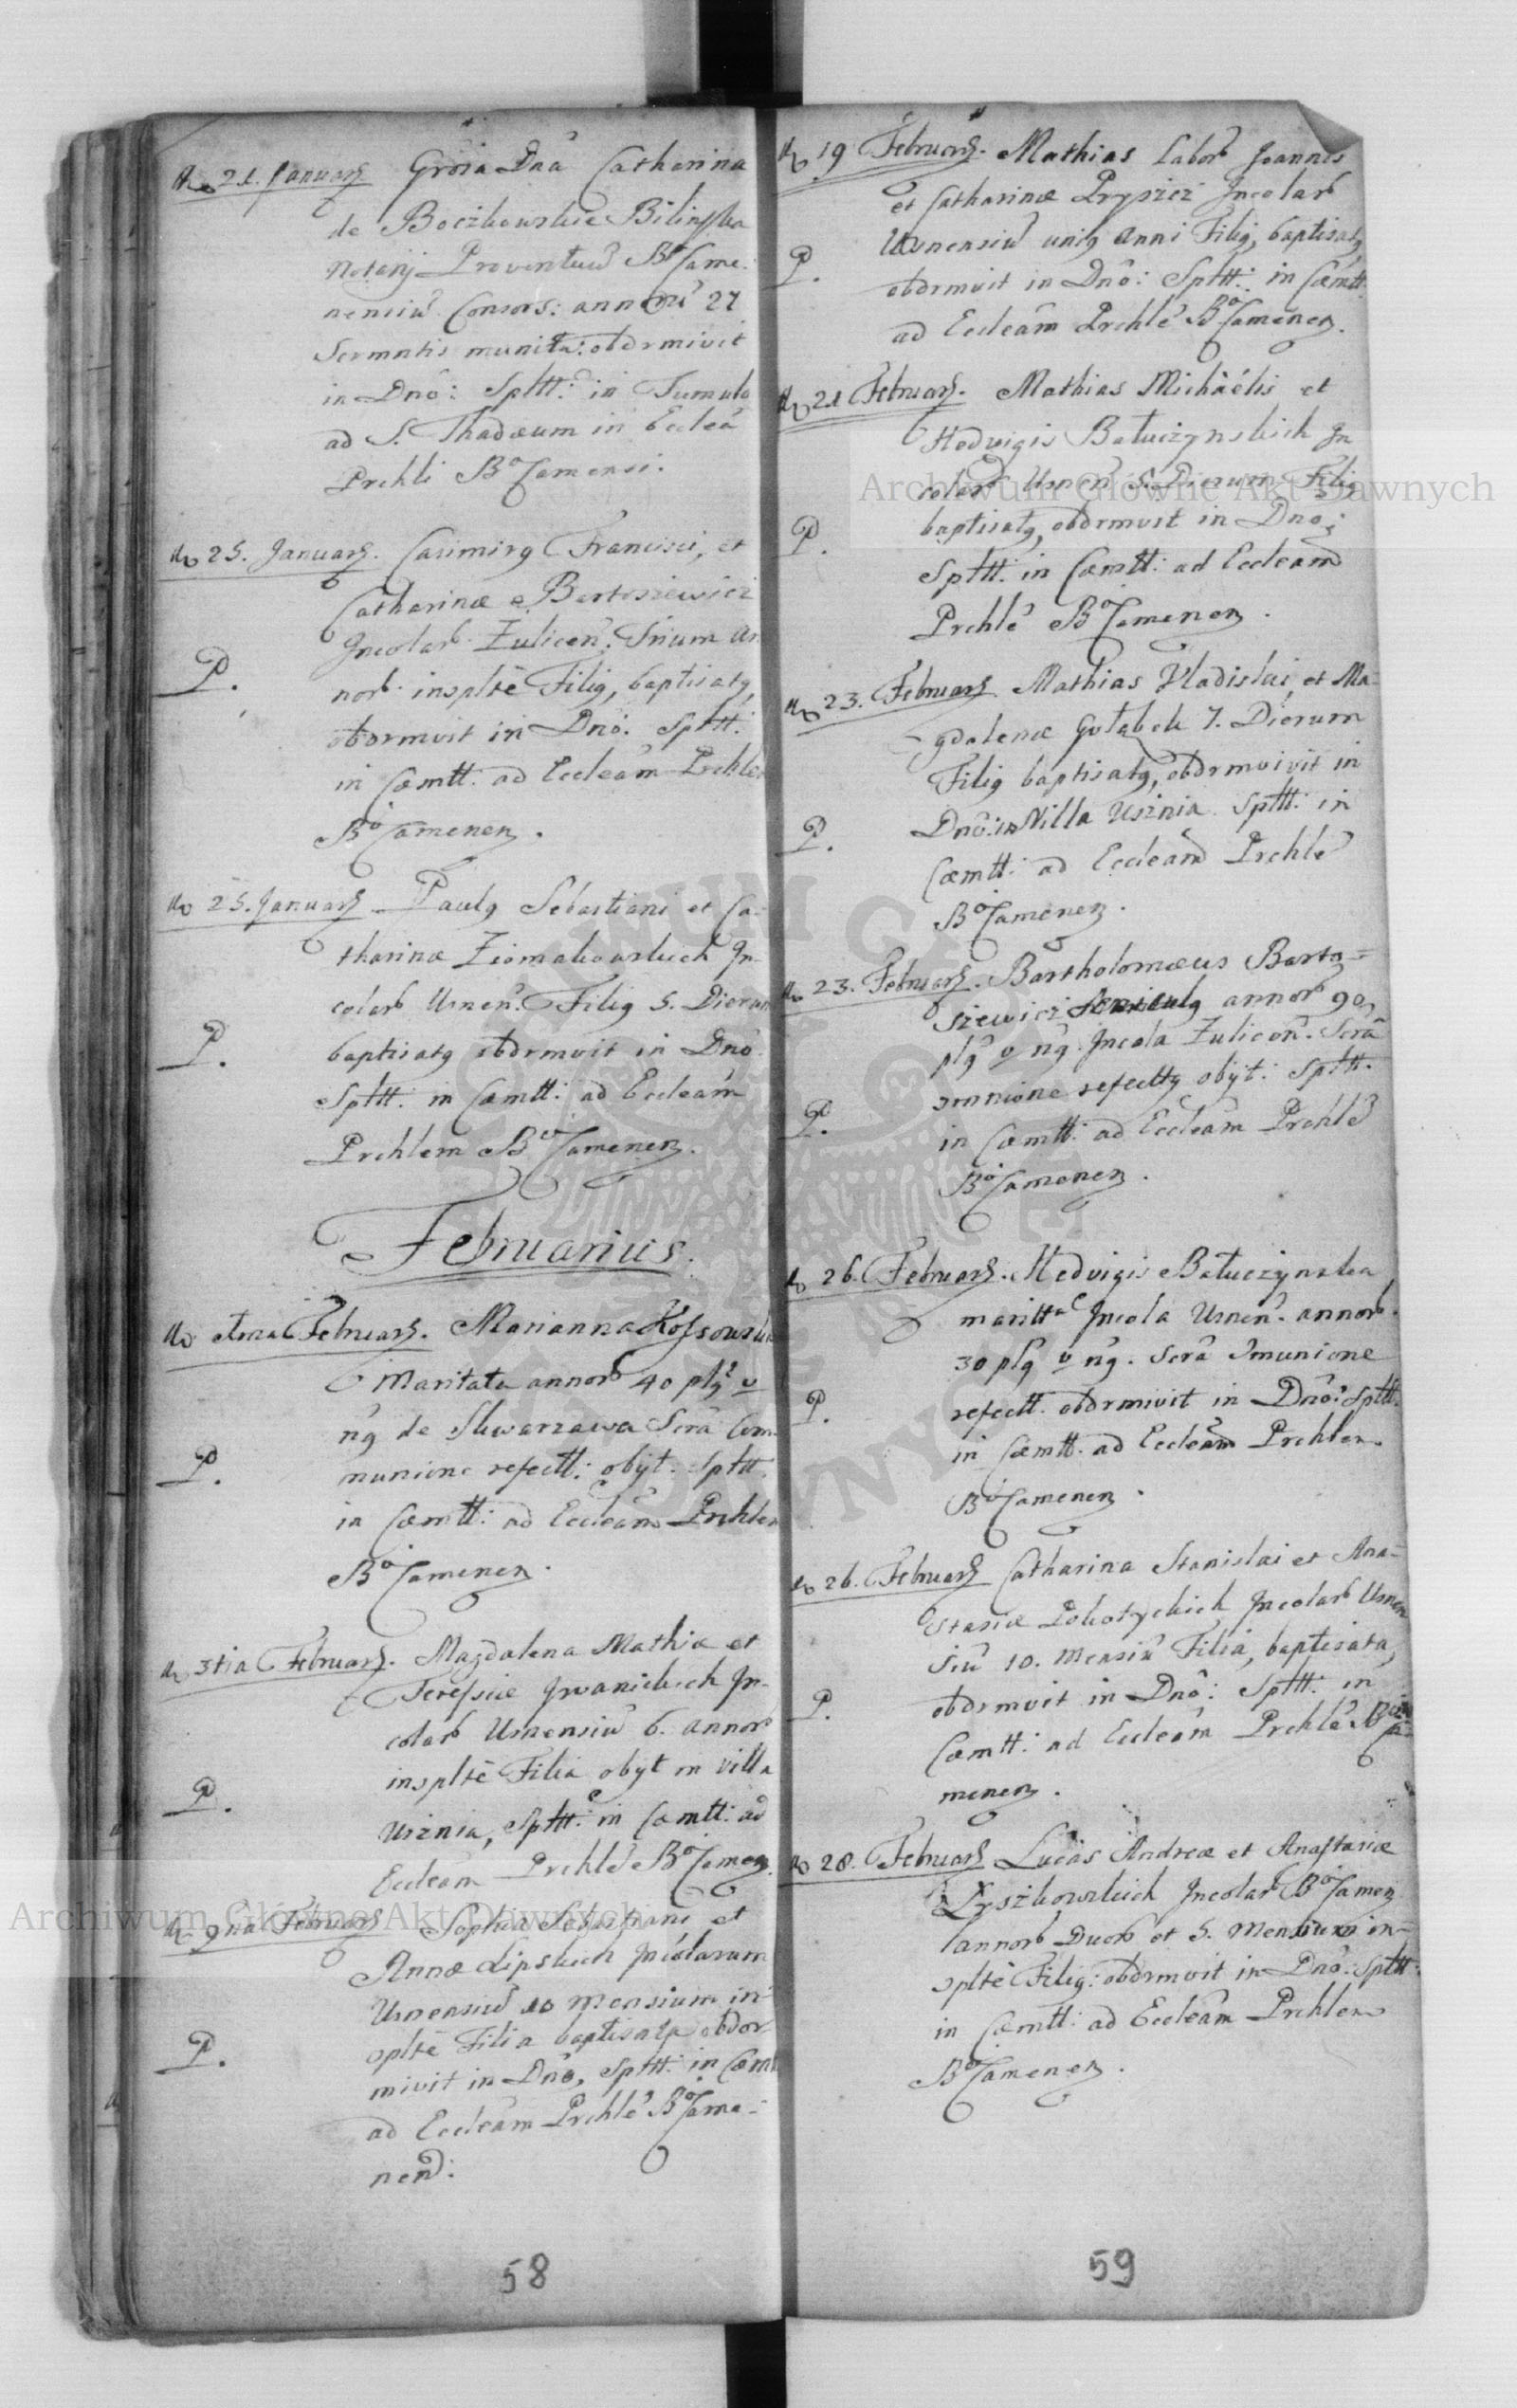 21. Januarij Grosa Dna Catharina
de Boczkowskie Bilinska
Notarij Proventuũ BoCame:
nensiũ Consors: annorũ 27
Scrmntis munita: obdrmivit
in Dno: Spltt: in Tumulo
ad S. Thadæum in Ecclea
Prchli BoCamensi.
25. Januarij. Casimirg Francisci, et
Catharinæ Bartosiewicz
Incolarb Zulicen. Trium An
norb insplte Filig, baptisatg,
obdrmvit in Dno. Spltt:
in Cæmtt: ad Eccleam Prchle
BoCamenen.
25. Januarij Paulg Sebastiani et Ca-
tharinæ Ziomakowskich In-
colarb Usnen. Filig 5. Dierum
P. baptisatg obdrmvit in Dno
Spltt. in Cæmtt: ad Eccleam
Prchlem BoCamenen.
Februarius.
1ma Februarij. Marianna Kossowska
Maritata annorb 40 plg v
ng de Skwarzawa Scra Com-
P. munione refectt: obijt. Spltt.
in Cæmtt: ad Eccleam Prchlem
BoCamenen.
3tia Februarij. Magdalena Mathiæ et
Teressiæ Iwanickich In-
colarb Usnensiũ 6. annorb
insplte Filia obijt in villa
P. Usznia, Spltt: in Cæmtt: ad
Eccleam Prchle BoCamen.
9na Februarij Sophia Sebastiani et
Annæ Lipskich Incolarum
Usnensiũ 10 Mensium in-
splte Filia baptisata obdor-
P. mivit in Dno, Spltt: in Cæmt
ad Eccleam Prchle BoCame-
nen:
58
19 Februarij. Mathias Labor Joannis
et Catharinæ Pryszcz Incolarb
Usnensiũ unig Anni Filig, baptisatg
P. obdrmvit in Dno: Spltt: in Cæmtt
ad Eccleam Prchle BoCamenen.
21 Februarij. Mathias Michaelis et
Hedvigis Bałuczynskich In
colarb Usnen 5. Dierum Filig
P. baptisatg, obdrmvit in Dno:
Spltt: in Cæmtt: ad Eccleam
Prchle BoCamenen.
23. Februarij Mathias Vladislai, et Ma-
gdalenæ Gołąbek 7. Dierum
Filig baptisatg, obdrmivit in
P. Dno: in Villa Usznia Spltt: in
Cæmtt: ad Eccleam Prchle
BoCamenen.
23. Februarij. Bartholomæus Barto=
siewicz annorb 90,
plg v ng. Incola Zulicen. Scra
omnione refecttg obijt: Spltt.
P. in Cæmtt: ad Eccleam Prchle
BoCamenen.
26. Februarij. Hedvigis Bałuczynska
maritta Incola Usnen. annorb
30 plg v ng. Scra Omunione
P. refectt. obdrmivit in Dno: Spltt.
in Cæmtt. ad Eccleam Prchlem
BoCamenen.
26. Februarij Catharina Stanislai et Ana=
stasiæ Pokotyckich Incolarb Usnen
siũ 10. Mensiũ Filia, baptisata,
P. obdrmvit in Dno: Spltt: in
Cæmtt: ad Eccleam Prchle BoCa-
menen.
28. Februarij Lucas Andreæ et Anastasiæ
Łyszkowskich Incolarb BoCamen
annorb Duorb et 5. Mensium in-
splte Filig: obdrmvit in Dno: Spltt:
in Cæmtt: ad Eccleam Prchlem
BoCamenen.
59
Archiwum Główne Akt Dawnych
Archiwum Główne Akt Dawnych